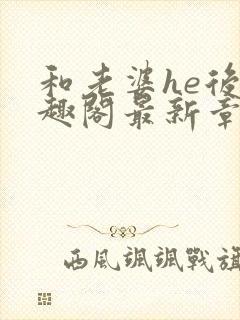 和老婆he後
趣閣最新章
西風颯颯戰旗